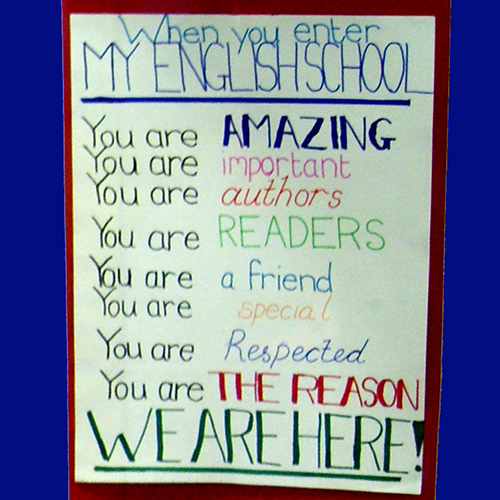 When you enter
MY ENGLISH SCHOOL
You are AMAZING
You are important
You are authors
You are READERS
You are a friend
You are special
You are Respected
You are THE REASON
WE ARE HERE!